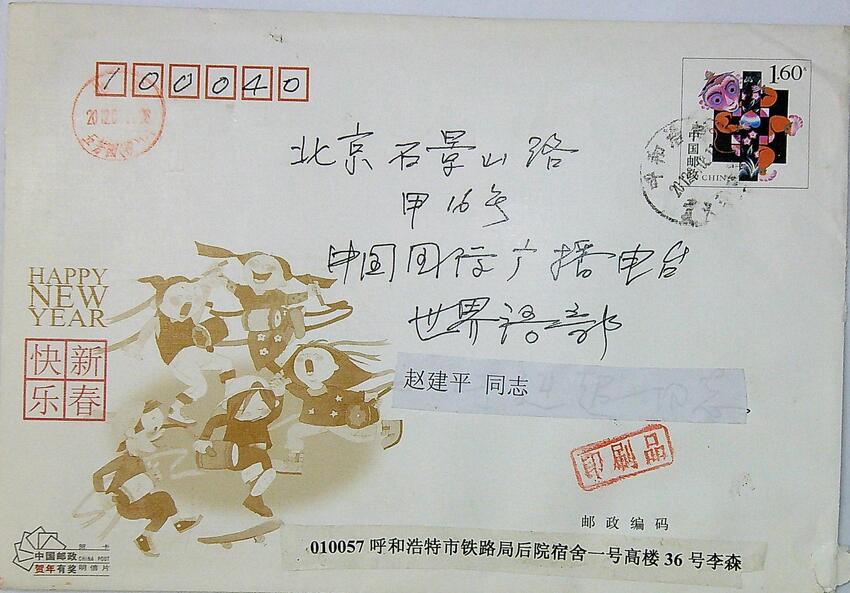 100040
1.60
中国邮政
CHINA
北京石景山路
甲16号
中国国际广播电台
世界语部
HAPPY
NEW
YEAR
新春
快乐
赵建平 同志
印刷品
邮政编码
010057 呼和浩特市铁路局后院宿舍一号高楼 36 号李森
贺卡
中国邮政 CHINA POST
贺年有奖 明信片